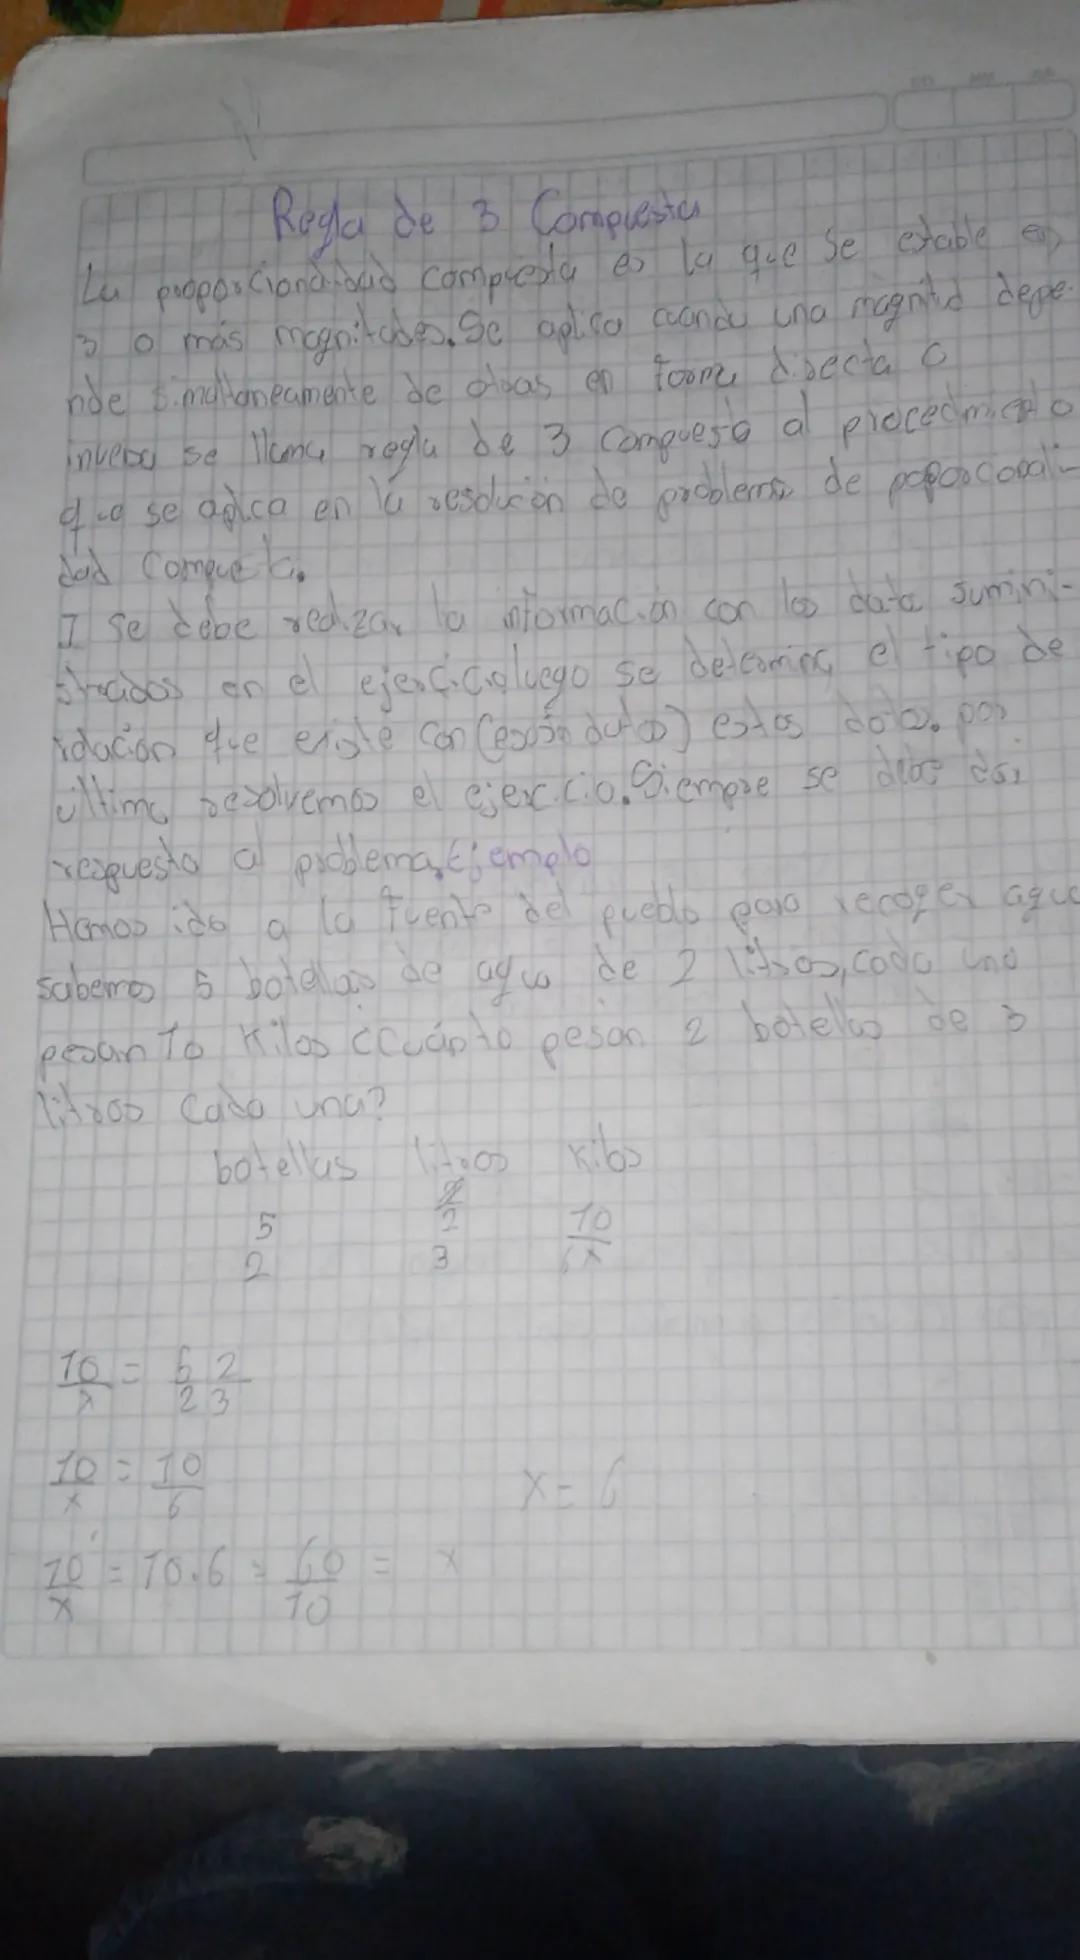 Regla de 3 Compuesta
La proporcionalidad compuesta es la que se estable en
3 o más magnitudes. Se aplica cuando una magnitud depe-
nde simultaneamente de otras en forma directa o
inversa se llama regla de 3 compuesta al procedimiento
que se aplica en la resolución de problemas de poporcionali-
dad compuesta.
I se debe realizar la información con los datos sumini-
strados en el ejercicio luego se determina el tipo de
relación que existe con estos datos. por
último resolvemos el ejercicio. Siempre se debe dar
respuesta al problema. Ejemplo
Hemos ido a la fuente del pueblo para recoger agua
sabemos 5 botellas de agua de 2 litros, cada una
pesan 10 kilos ¿cuánto pesan 2 botellas de 3
litros cada una?
botellas litros kilos
2
5 2 10
2 3 x
10/x = 5/2 2/3
10/x = 10/6 x = 6
10/x = 10.6 = 60/10 = x